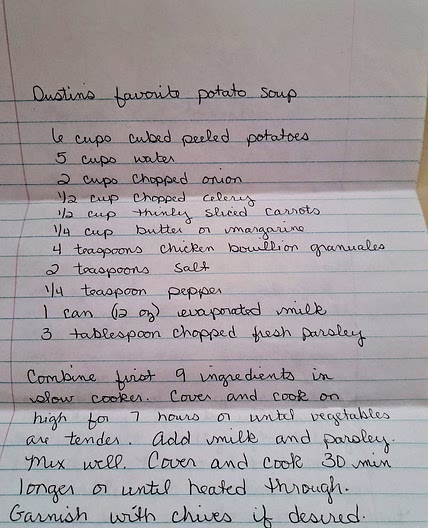 Dustins favorite potato soup
6 cups cubed peeled potatoes
5 cups water
2 cups chopped onion
1/2 cup chopped celery
1/2 cup thinly sliced carrots
1/4 cup butter or margarine
4 teaspoons chicken bouillion granuales
2 teaspoons salt
1/4 teaspoon pepper
1 can (12 oz) evaporated milk
3 tablespoon chopped fresh parsley
Combine first 9 ingredients in
slow cooker. Cover and cook on
high for 7 hours or until vegetables
are tender. Add milk and parsley.
Mix well. Cover and cook 30 min
longer or until heated through.
Garnish with chives if desired.